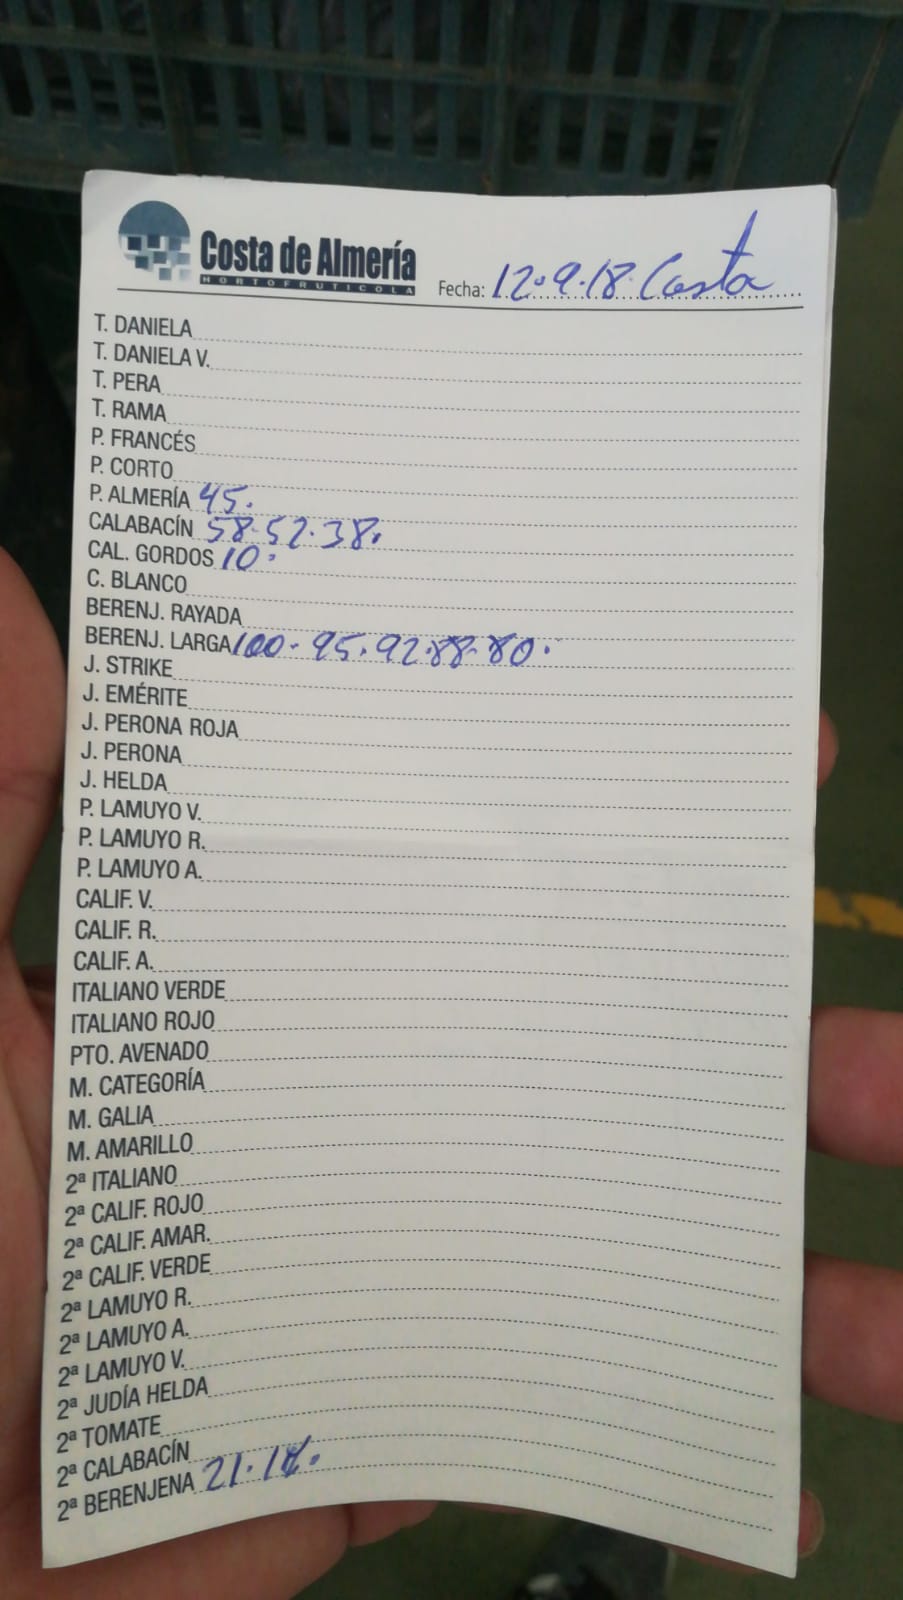 Costa de Almería
HORTOFRUTICOLA
Fecha: 12.9.18. Costa
T. DANIELA
T. DANIELA V.
T. PERA
T. RAMA
P. FRANCÉS
P. CORTO
P. ALMERÍA 45.
CALABACÍN 58.52.38.
CAL. GORDOS 10.
C. BLANCO
BERENJ. RAYADA
BERENJ. LARGA 100.95.92.88.80.
J. STRIKE
J. EMÉRITE
J. PERONA ROJA
J. PERONA
J. HELDA
P. LAMUYO V.
P. LAMUYO R.
P. LAMUYO A.
CALIF. V.
CALIF. R.
CALIF. A.
ITALIANO VERDE
ITALIANO ROJO
PTO. AVENADO
M. CATEGORÍA
M. GALIA
M. AMARILLO
2ª ITALIANO
2ª CALIF. ROJO
2ª CALIF. AMAR.
2ª CALIF. VERDE
2ª LAMUYO R.
2ª LAMUYO A.
2ª LAMUYO V.
2ª JUDÍA HELDA
2ª TOMATE
2ª CALABACÍN
2ª BERENJENA 21.